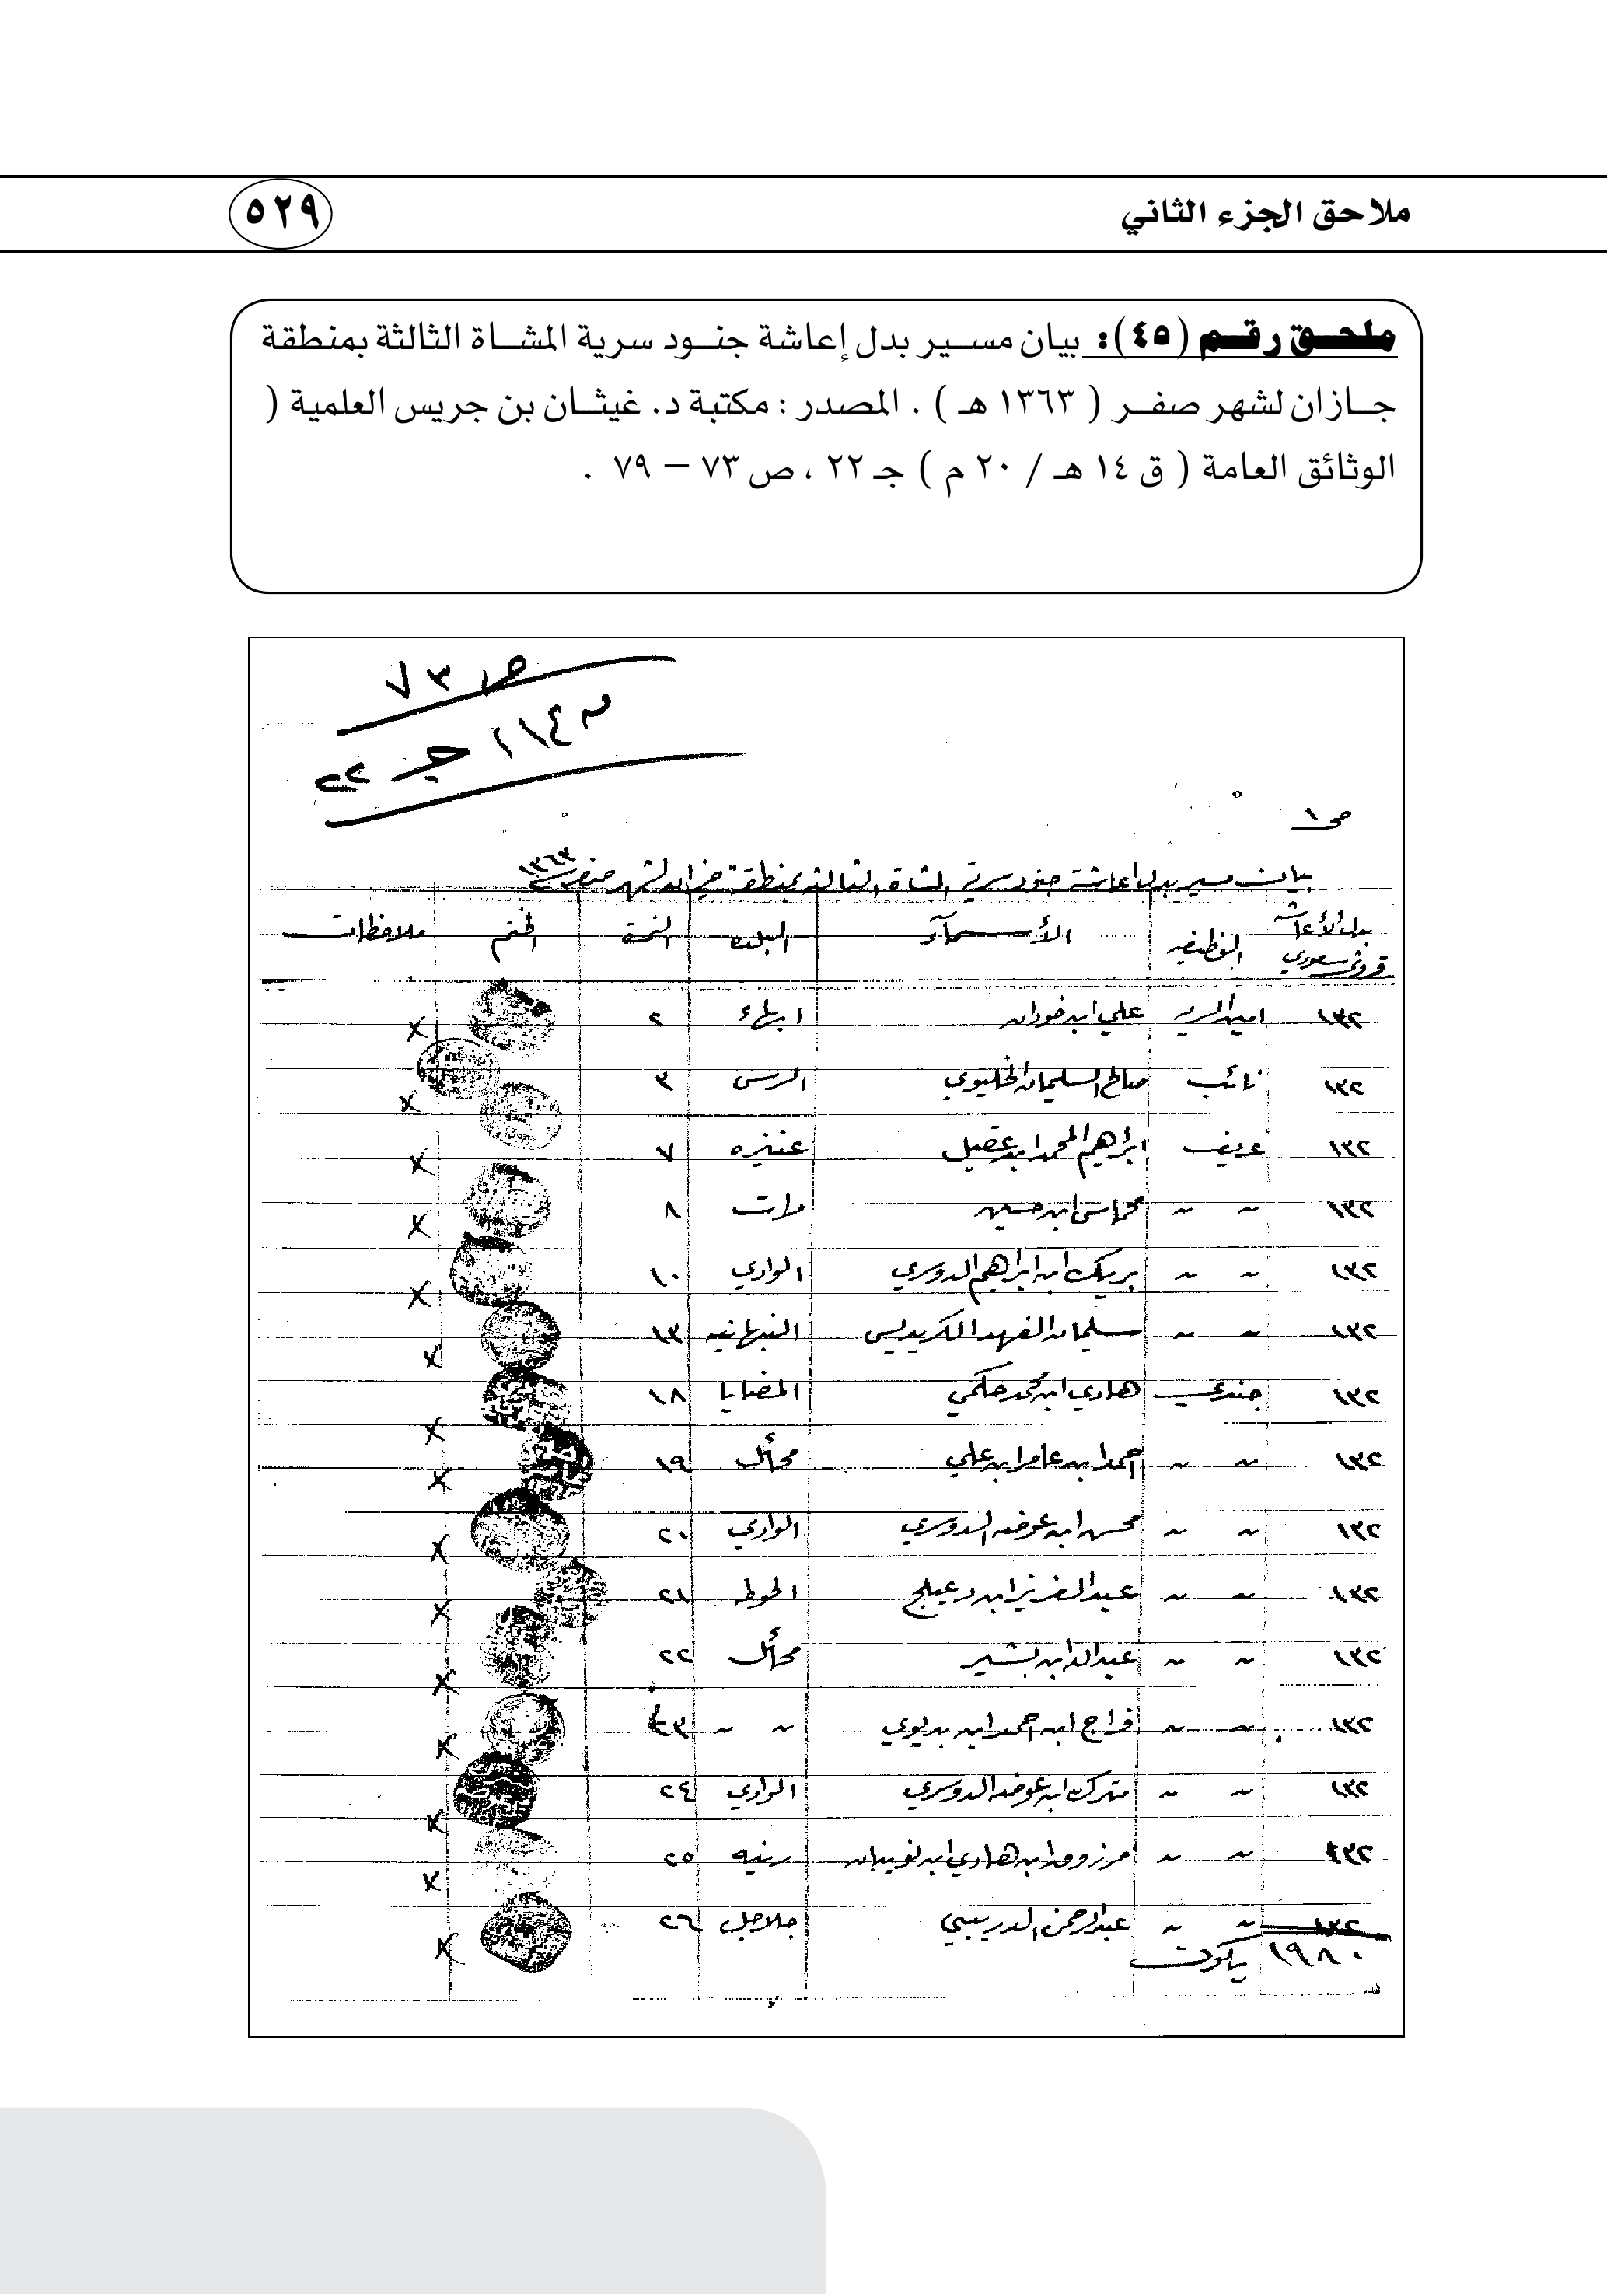 ملاحق الجزء الثاني
٥٢٩
ملحق رقم (٤٥): بيان مسير بدل إعاشة جنود سرية المشاة الثالثة بمنطقة
جازان لشهر صفر ( ١٣٦٣ هـ ) . المصدر : مكتبة د. غيثان بن جريس العلمية (
الوثائق العامة ( ق ١٤ هـ / ٢٠ م ) جـ ٢٢ ، ص ٧٣ – ٧٩ .
ص ٧٣
جـ ٢٢
ص ١
بيان مسير بدل اعاشة جنود سرية المشاة الثالثة بمنطقة جيزان لشهر صفر ١٣٦٣
بدل الأعاشه قروش سعودي الوظيفه الأسمآء البلده النمرة الختم ملاحظات
١٣٢ امين السريه علي ابن ابهاء ٢
١٣٢ نائب صالح السليمان الخليوي الرس ٣
١٣٢ عريف ابراهيم المحمد ابن عقيل عنيزه ٧
١٣٢ ~ ~ محماس ابن حسين ٨
١٣٢ ~ ~ بريك ابن ابراهيم الدوسري الوادي ١٠
١٣٢ ~ ~ سليمان الفهد الكريديس النبهانيه ١٣
١٣٢ جندي هادي ابن محمد حكمي المضايا ١٨
١٣٢ ~ ~ احمد ابن عامر ابن علي محائل ١٩
١٣٢ ~ ~ محسن ابن عوضه الدوسري الوادي ٢٠
١٣٢ ~ ~ عبدالعزيز ابن دعيلج الحوطه ٢١
١٣٢ ~ ~ عبدالله ابن بشير محائل ٢٢
١٣٢ ~ ~ فراج ابن احمد ابن بديوي ~ ~ ٢٣
١٣٢ ~ ~ مترك ابن عوضه الدوسري الوادي ٢٤
١٣٢ ~ ~ مرزوق ابن هادي ابن رنيه ٢٥
١٣٢ ~ ~ عبدالرحمن الدريبي جلاجل ٢٦
١٩٨٠ يكون